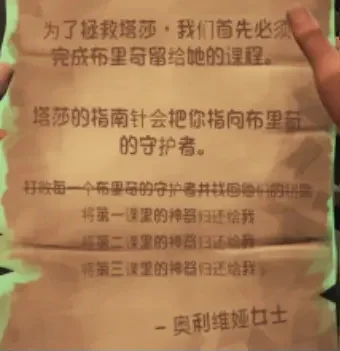 为了拯救塔莎，我们首先必须
完成布里奇留给她的课程。
塔莎的指南针会把你指向布里奇
的守护者。
打败每一个布里奇的守护者并找回他们的
将第一课里的神器归还给我
将第二课里的神器归还给我
将第三课里的神器归还给我
- 奥利维娅女士